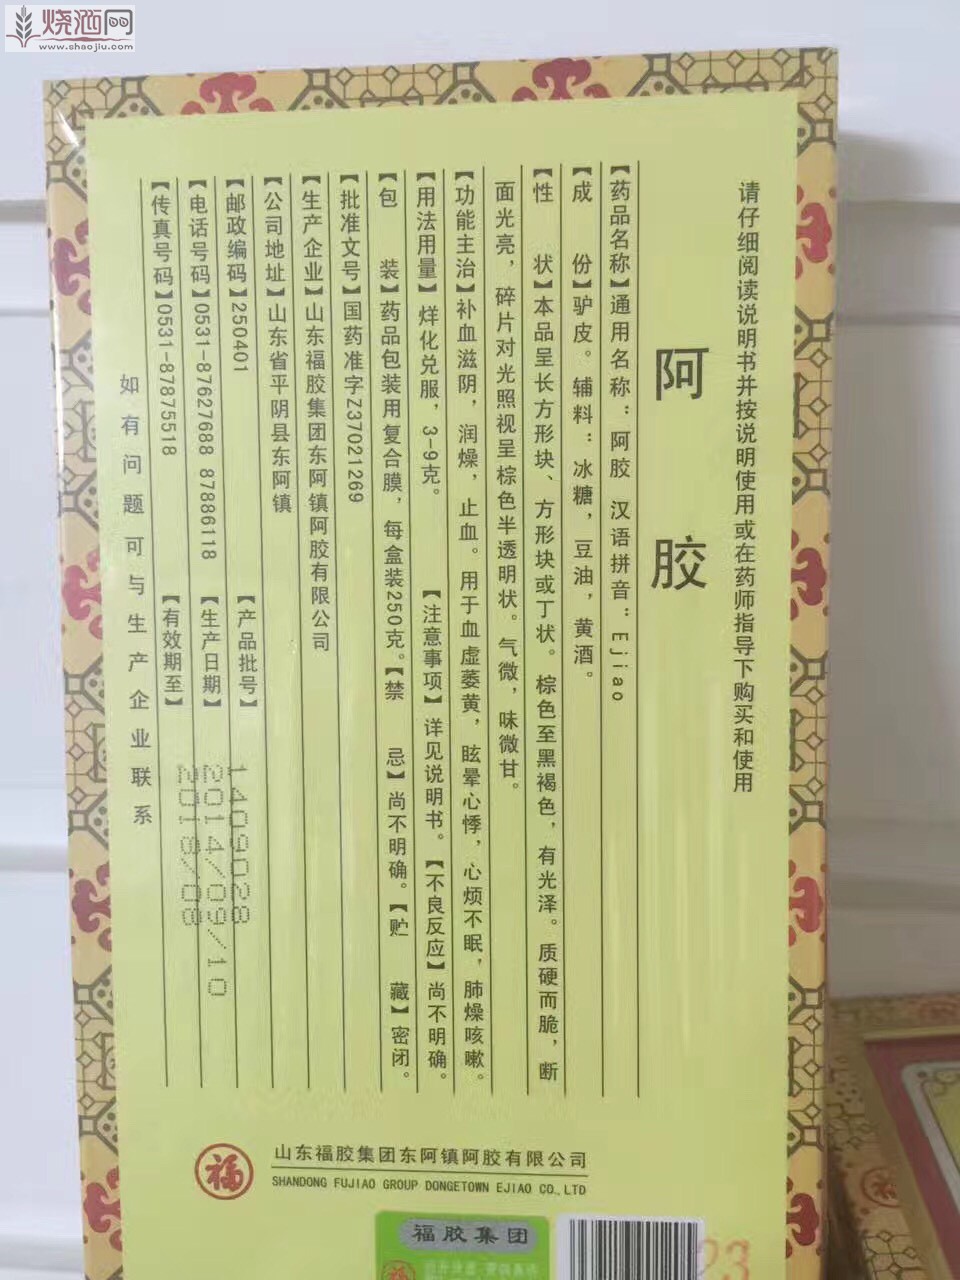 烧酒网
www.shaojiu.com
请仔细阅读说明书并按说明使用或在药师指导下购买和使用
阿胶
【药品名称】通用名称：阿胶 汉语拼音：Ejiao
【成 份】驴皮。辅料：冰糖，豆油，黄酒。
【性 状】本品呈长方形块、方形块或丁状。棕色至黑褐色，有光泽。质硬而脆，断
面光亮，碎片对光照视呈棕色半透明状。气微，味微甘。
【功能主治】补血滋阴，润燥，止血。用于血虚萎黄，眩晕心悸，心烦不眠，肺燥咳嗽。
【用法用量】烊化兑服，3-9克。 【注意事项】详见说明书。【不良反应】尚不明确。
【包 装】药品包装用复合膜，每盒装250克。【禁 忌】尚不明确。【贮 藏】密闭。
【批准文号】国药准字Z37021269
【生产企业】山东福胶集团东阿镇阿胶有限公司
【公司地址】山东省平阴县东阿镇
【邮政编码】250401 【产品批号】1409028
【电话号码】0531-87627688 87886118 【生产日期】2014/09/10
【传真号码】0531-87875518 【有效期至】2018/08
如有问题可与生产企业联系
福
山东福胶集团东阿镇阿胶有限公司
SHANDONG FUJIAO GROUP DONGETOWN EJIAO CO.,LTD
福胶集团
福
23